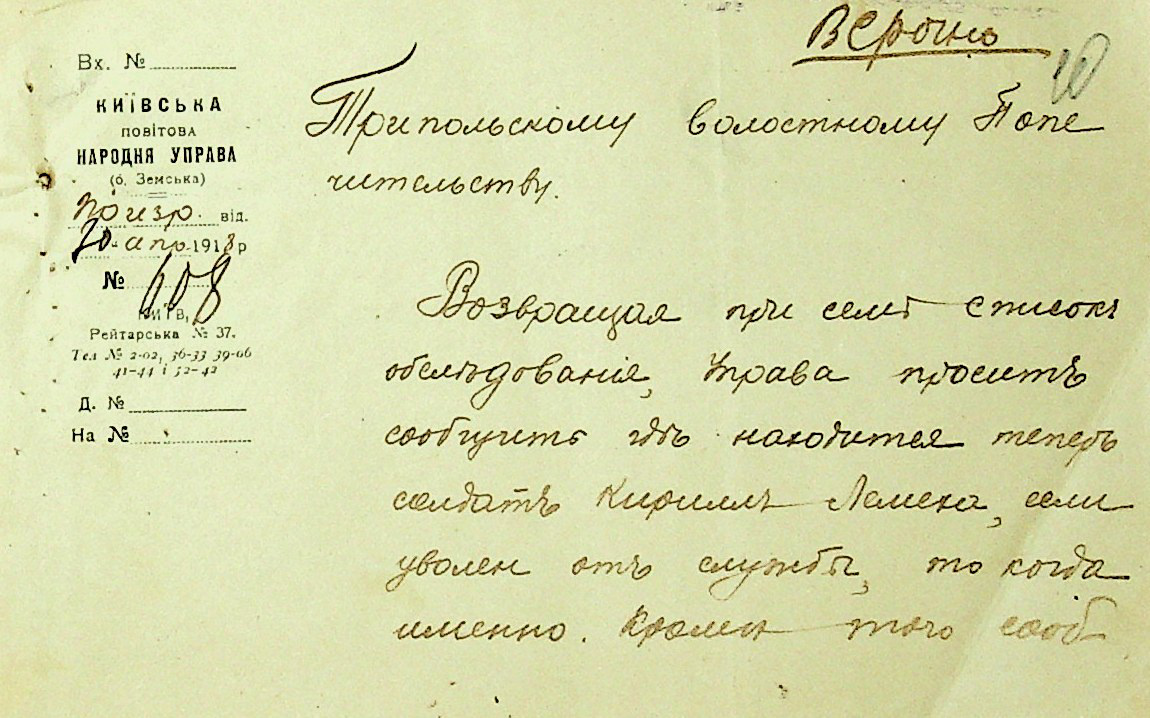 В Срочно
10
Вх. №
КИЇВСЬКА
ПОВІТОВА
НАРОДНЯ УПРАВА
(б. Земська)
Призр. від.
20 " апр. 1918 р
№ 608
КИЇВ,
Рейтарська № 37.
Тел № 2-02, 36-33 39-06
41-44 і 52-42
Д. №
На №
Трипольскому волостному Попе
чительству.
Возвращая при семъ списокъ
обслѣдованія, Управа проситъ
сообщить гдѣ находится теперь
солдатъ Кириллъ Лемеха, если
уволен отъ службы, то когда
именно. Кромѣ того сооб